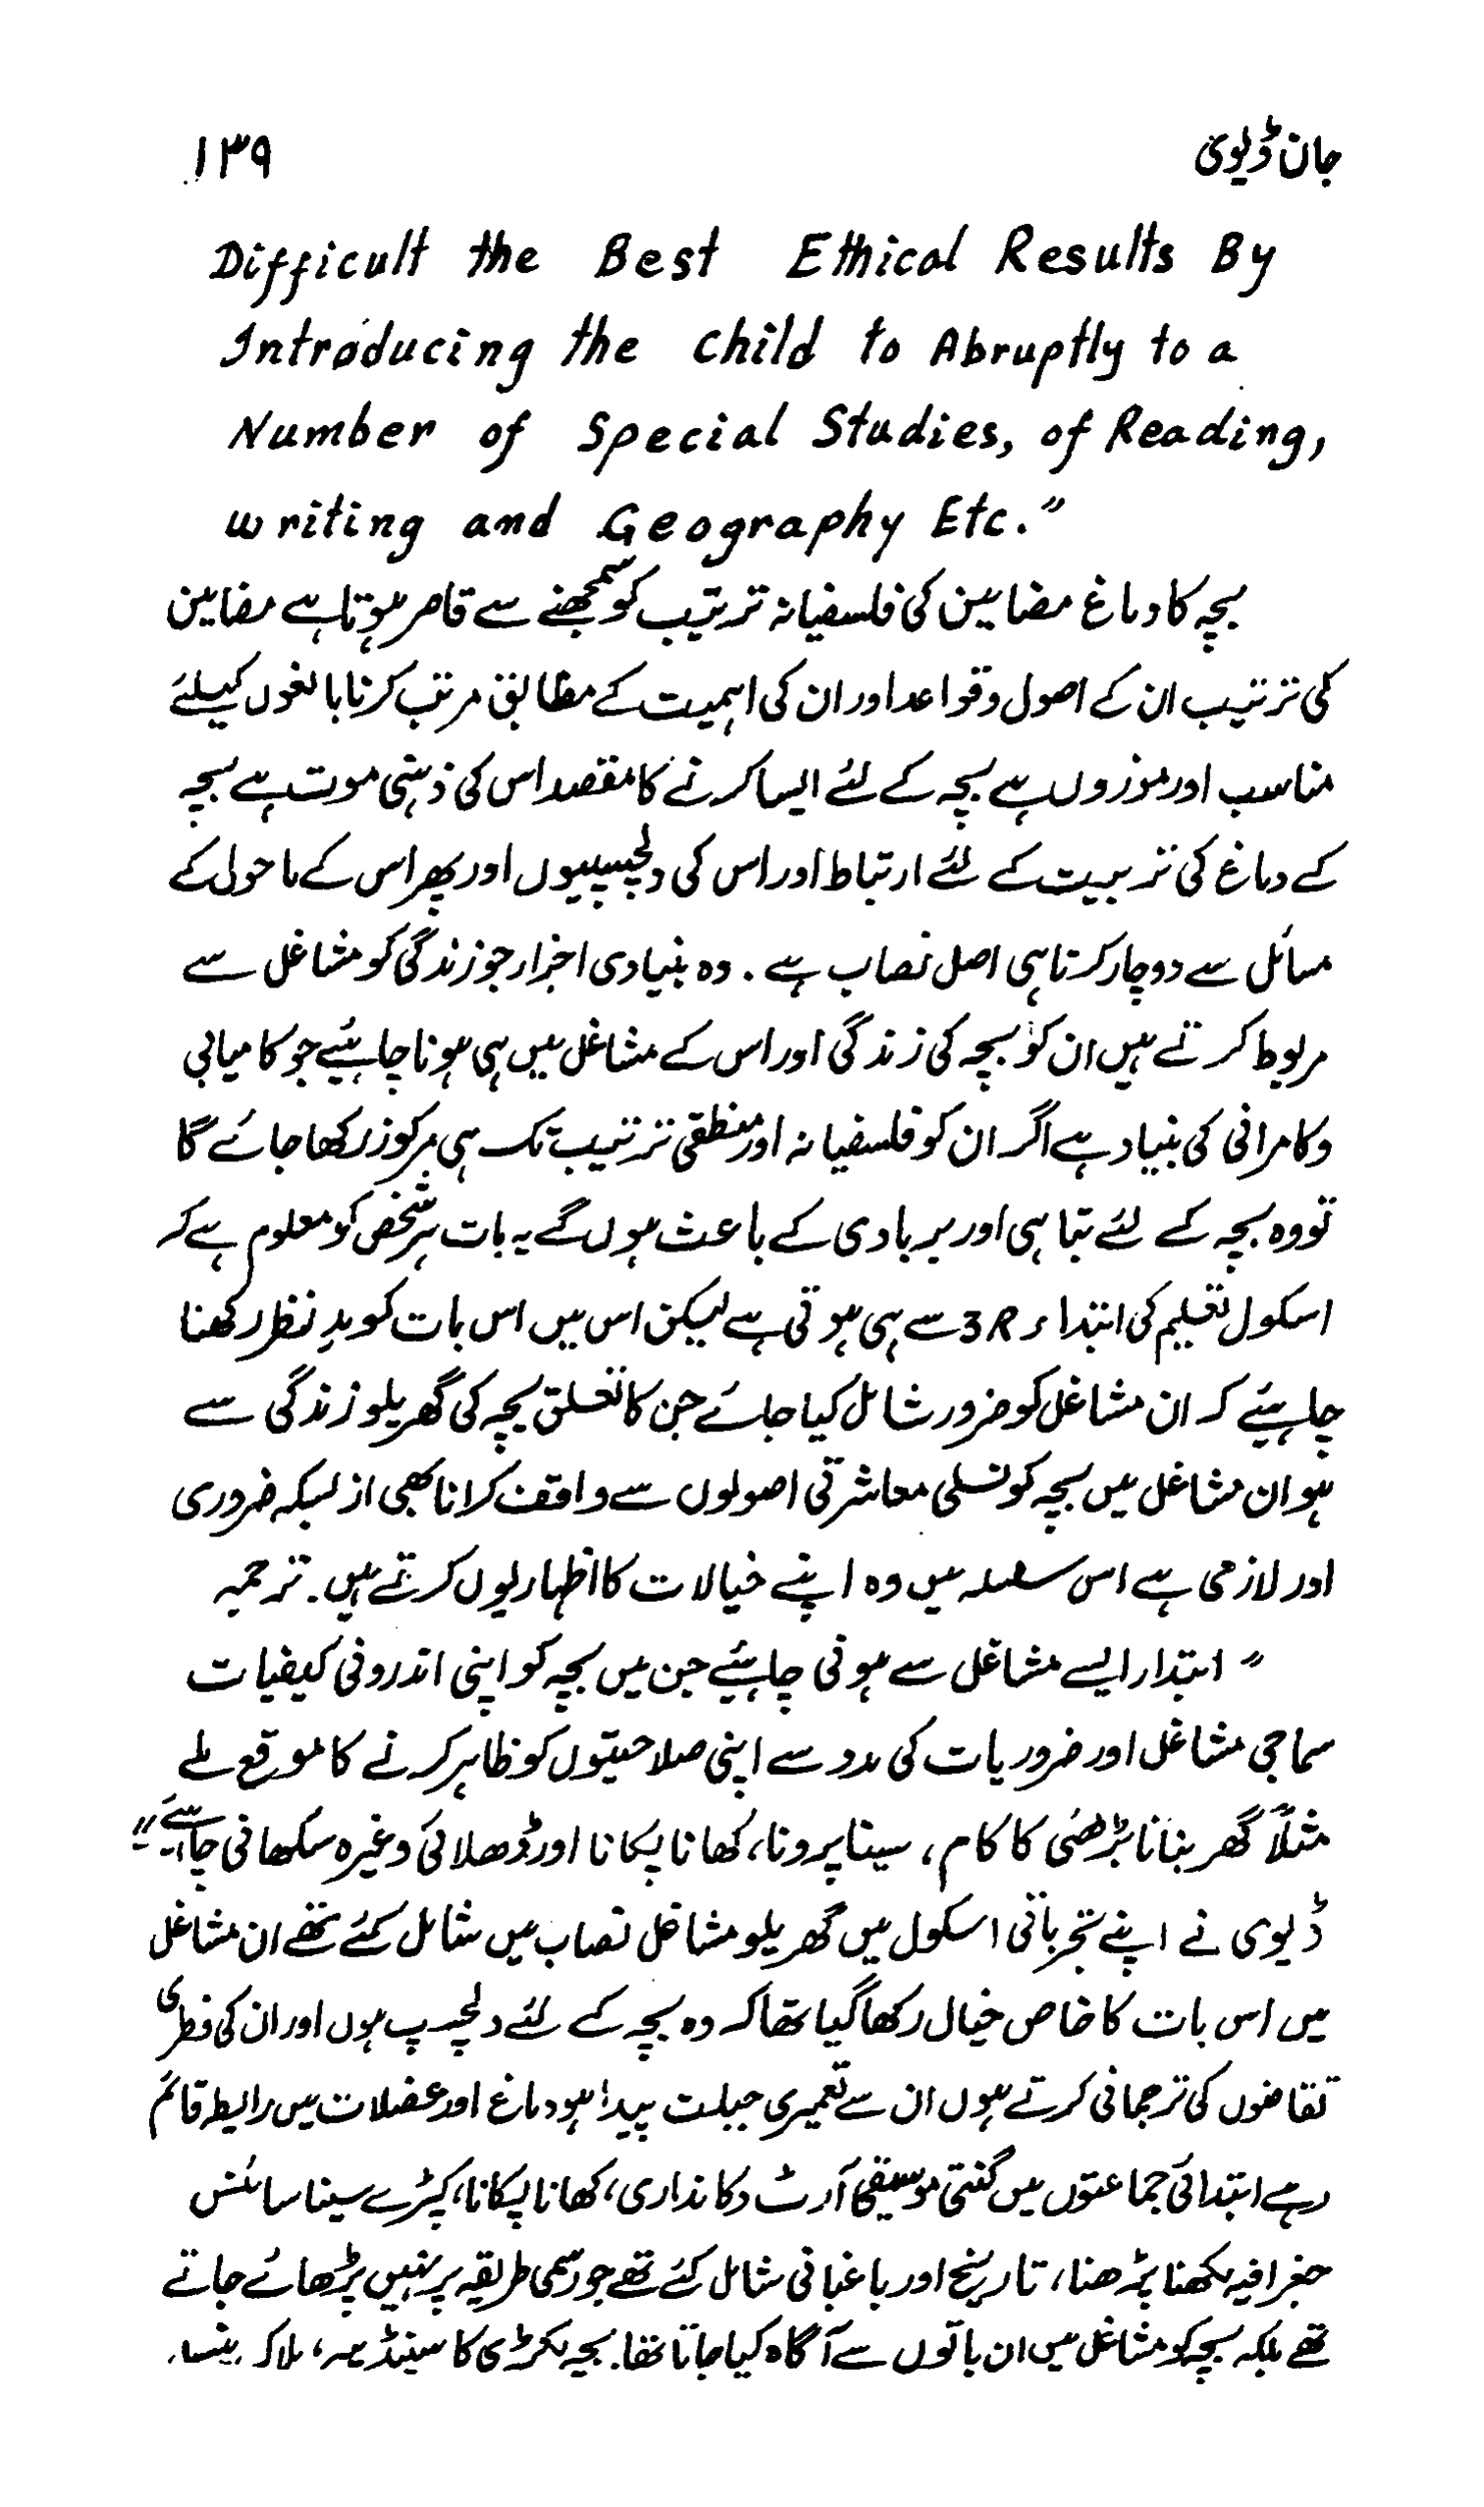 جان ڈیوی ۱۳۹
Difficult the Best Ethical Results By
Introducing the child to Abruptly to a
Number of Special Studies, of Reading,
writing and Geography Etc."
بچہ کا دماغ مضامین کی فلسفیانہ ترتیب کو سمجھنے سے قاصر ہوتا ہے مضامین
کی ترتیب ان کے اصول و قواعد اور ان کی اہمیت کے مطابق مرتب کرنا بالغوں کیلئے
مناسب اور موزوں ہے بچہ کے لئے ایسا کرنے کا مقصد اس کی ذہنی موت ہے بچہ
کے دماغ کی تربیت کے لئے ارتباط اور اس کی دلچسپیوں اور پھر اس کے ماحول کے
مسائل سے دوچار کرنا ہی اصل نصاب ہے۔ وہ بنیادی اجزار جو زندگی کو مشاغل سے
مربوط کرتے ہیں ان کو بچہ کی زندگی اور اس کے مشاغل میں ہی ہونا چاہئیے جو کامیابی
و کامرانی کی بنیاد ہے اگر ان کو فلسفیانہ اور منطقی ترتیب تک ہی مرکوز رکھا جائے گا
تو وہ بچہ کے لئے تباہی اور بربادی کے باعث ہوں گے یہ بات ہر شخص کو معلوم ہے کہ
اسکول تعلیم کی ابتداء 3R سے ہی ہوتی ہے لیکن اس میں اس بات کو مدِ نظر رکھنا
چاہیئے کہ ان مشاغل کو ضرور شامل کیا جائے جن کا تعلق بچہ کی گھریلو زندگی سے
ہو ان مشاغل میں بچہ کو نسلی معاشرتی اصولوں سے واقف کرانا بھی از بسکہ ضروری
اور لازمی ہے اس سلسلہ میں وہ اپنے خیالات کا اظہار یوں کرتے ہیں۔ ترجمہ
" ابتدار ایسے مشاغل سے ہونی چاہیئے جن میں بچہ کو اپنی اندرونی کیفیات
سماجی مشاغل اور ضروریات کی مدد سے اپنی صلاحیتوں کو ظاہر کرنے کا موقع ملے
مثلاً گھر بنانا بڑھئی کا کام، سینا پرونا، کھانا پکانا اور ڈھلائی وغیرہ سکھانی چاہیئے"
ڈیوی نے اپنے تجرباتی اسکول میں گھریلو مشاغل نصاب میں شامل کئے تھے ان مشاغل
میں اس بات کا خاص خیال رکھا گیا تھا کہ وہ بچہ کے لئے دلچسپ ہوں اور ان کی فطری
تقاضوں کی ترجمانی کرتے ہوں ان سے تعمیری جبلت پیدا ہو دماغ اور عضلات میں رابطہ قائم
رہے ابتدائی جماعتوں میں گنتی موسیقی آرٹ دکانداری، کھانا پکانا، کپڑے سینا سائنس
جغرافیہ لکھنا پڑھنا، تاریخ اور باغبانی شامل کئے تھے جو رسمی طریقہ پر نہیں پڑھائے جاتے
تھے بلکہ بچہ کو مشاغل میں ان باتوں سے آگاہ کیا جاتا تھا۔ بچہ لکڑی کا